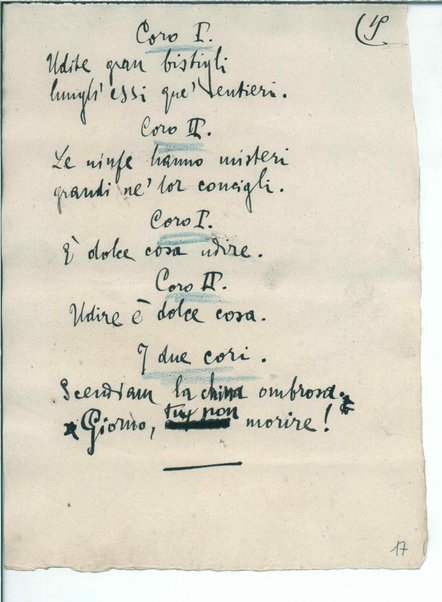 Coro I.
Udite gran bistigli
lungh'essi que' sentieri.
Coro II.
Le ninfe hanno misteri
grandi ne' lor concigli.
Coro I.
È dolce cosa udire.
Coro II.
Udire è dolce cosa.
I due cori.
Scendiam la china ombrosa.
Giorno, tu non morire!
17